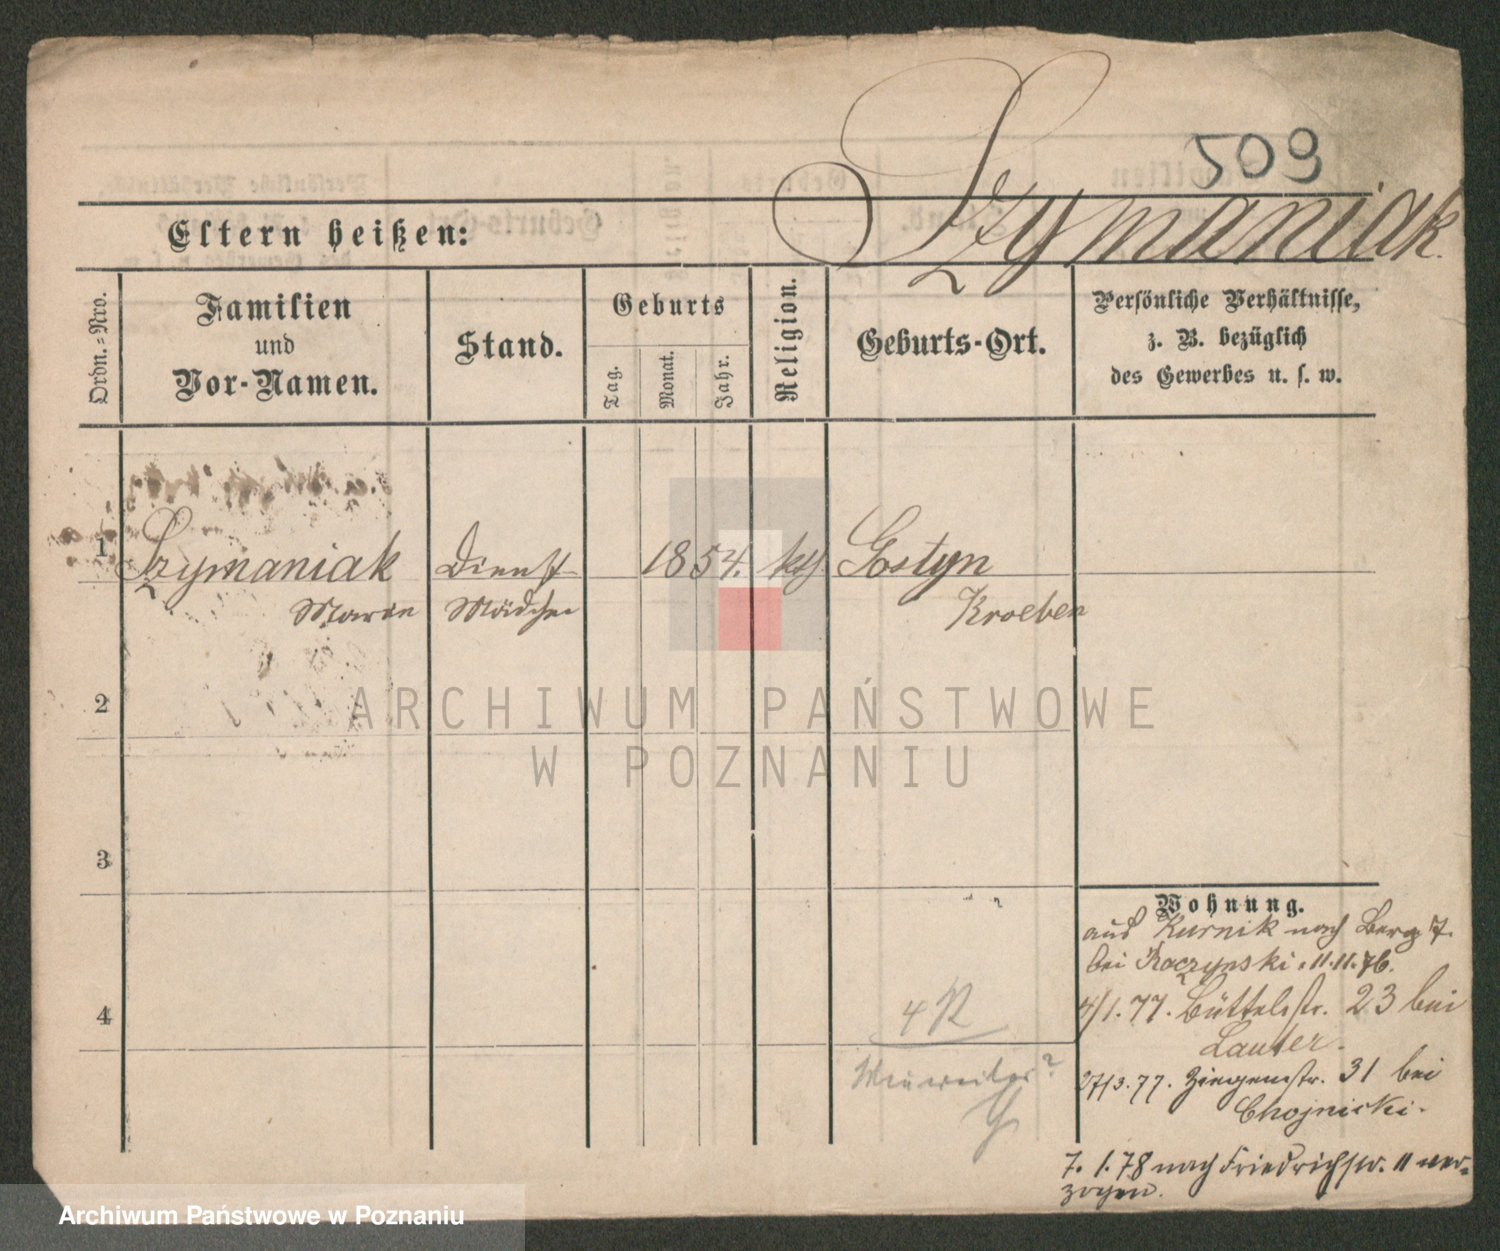 509
Szymaniak.
Eltern heißen:
Ordn.-Nro.
Familien
und
Vor-Namen.
Stand.
Geburts
Tag.
Monat.
Jahr.
Religion.
Geburts-Ort.
Persönliche Verhältnisse,
z. B. bezüglich
des Gewerbes u. s. w.
1 Szymaniak Dienst 1854. kth Gostyn
Marie Mädchen Kroeben
2
3
4
Wohnung.
aus Kurnik nach Berg 7.
bei Raczynski. 11.11.76.
4/1.77. Büttelstr. 23 bei
Lauter.
27/3.77. Ziegenstr. 31 bei
Chojnicki.
7. 1.78 nach Friedrichstr. 11 ver-
zogen.
4 R
ARCHIWUM PAŃSTWOWE
W POZNANIU
Archiwum Państwowe w Poznaniu